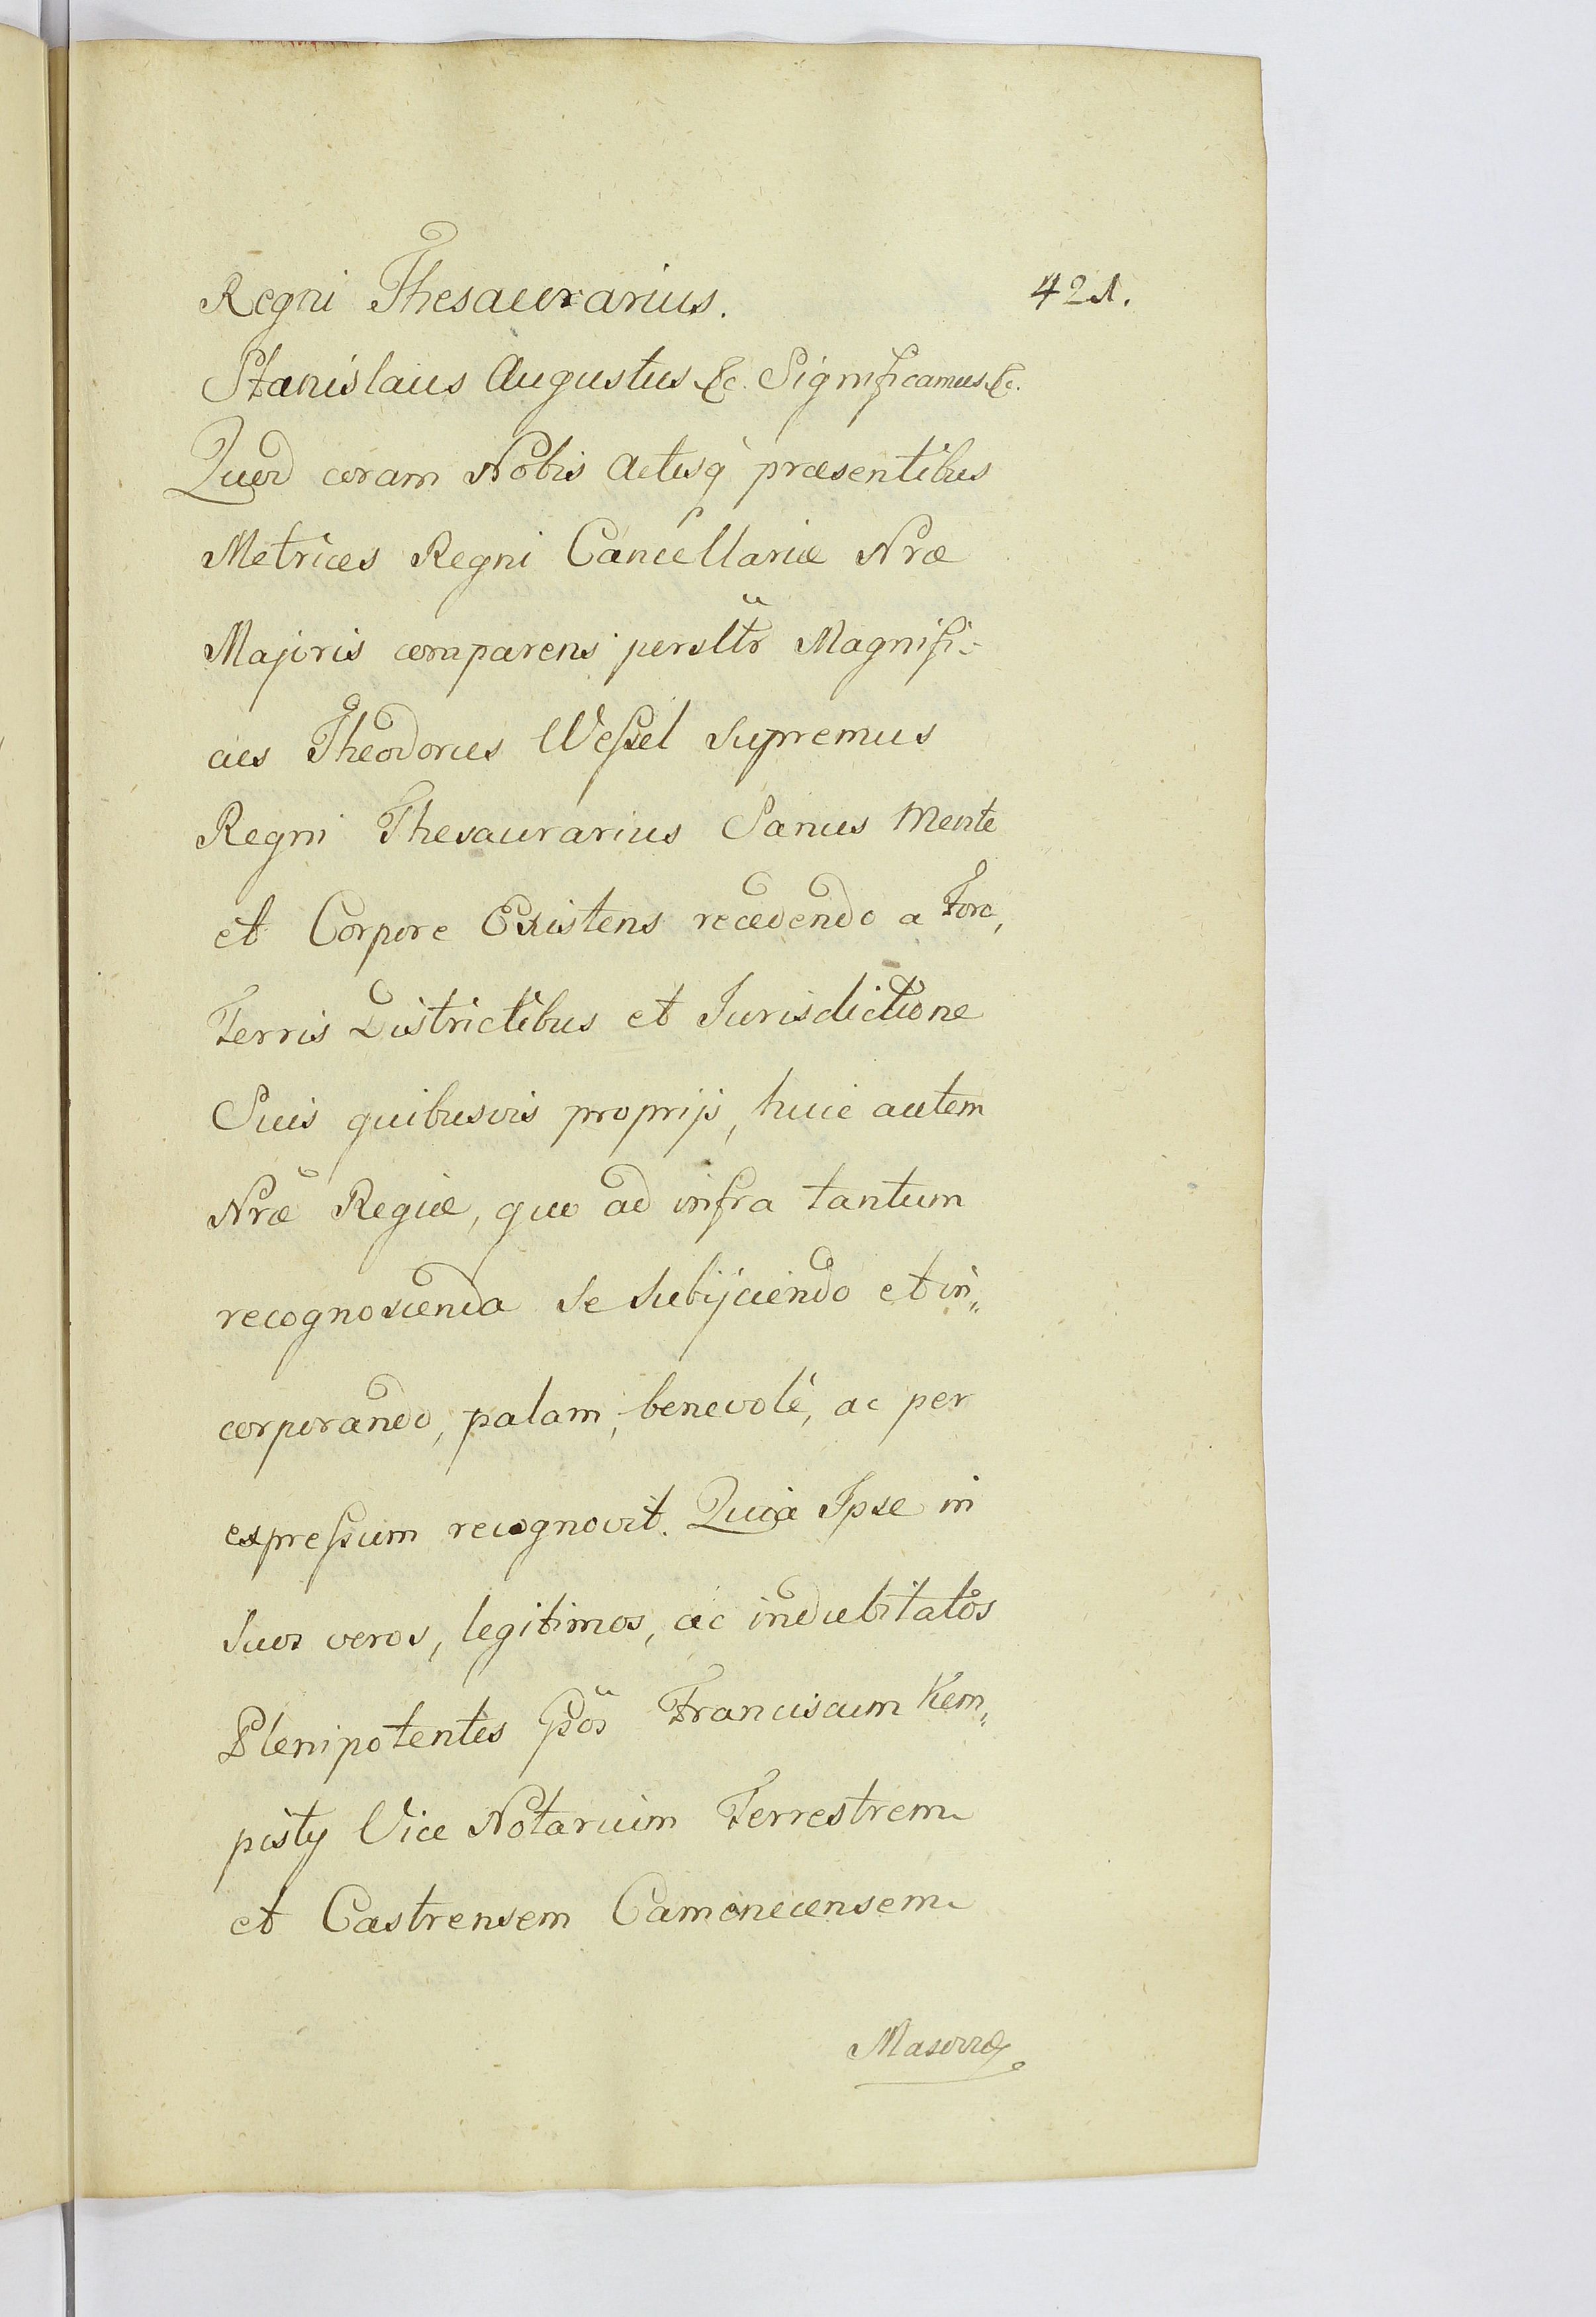 Regni Thesaurarius.
421.
Stanislaus Augustus &c. Significamus &c.
Quod coram Nobis Actisq́ præsentibus
Metrices Regni Cancellariæ Nræ
Majoris comparens psnltr Magnifi-
cus Theodorus Weſsel Supremus
Regni Thesaurarius Sanus Mente
et Corpore Existens recedendo a Foro,
Terris Districtibus et Jurisdictione
Suis quibusvis proprijs, huic autem
Nræ Regiæ, quo ad infra tantum
recognoscenda se subijciendo et in„
corporando, palam, benevolè, ac per
expreſsum recognovit. Quia Ipse in
suos veros, legitimos, ac indubitatos
Plenipotentes Gsõs Franciscum Kem„
pisty Vice Notarium Terrestrem
et Castrensem Camenecensem